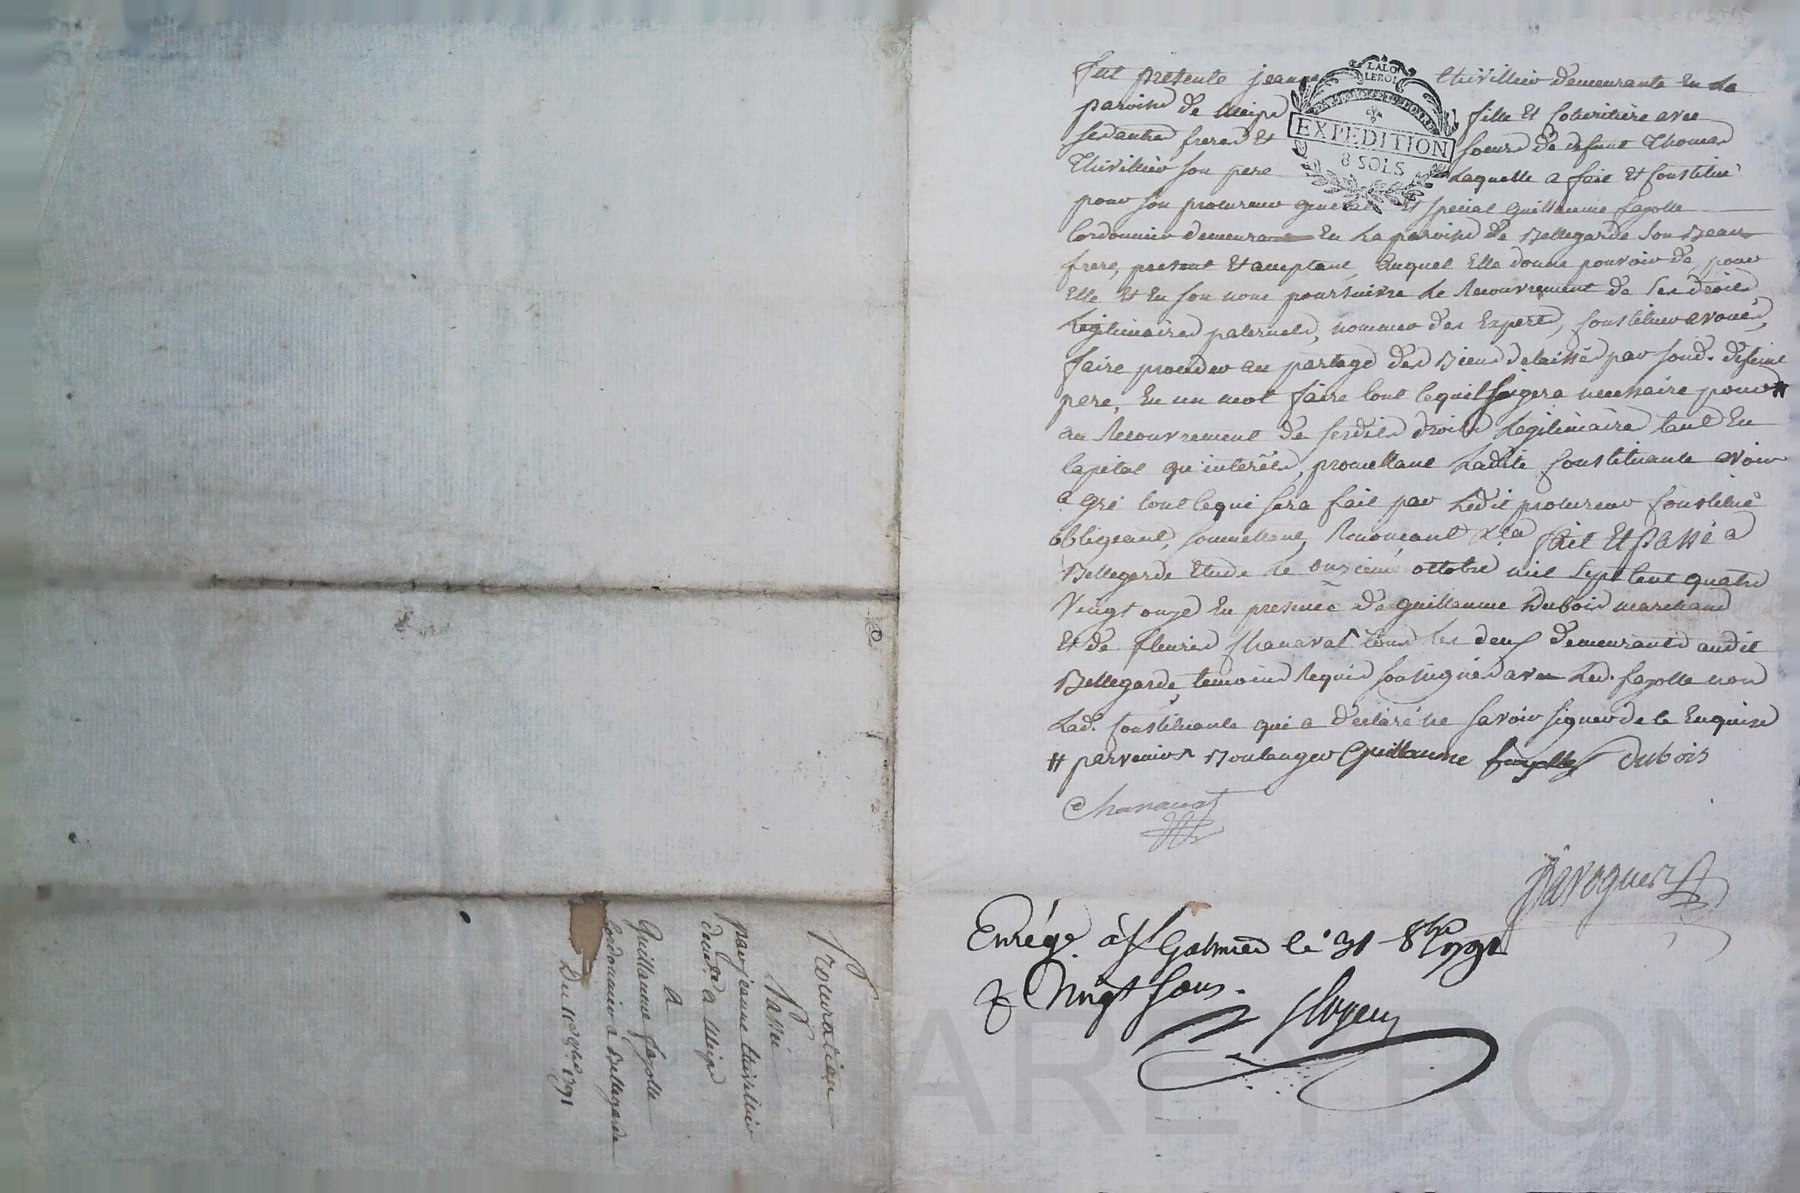 fut presente jeanne thivillier demeurante en la
paroisse de Meipe fille et coheritiere avec
ses autres freres et soeurs de defunt Thomas
thivillier son pere Laquelle a fait et constitué
pour son procureur general et special guillaume fayolle
Cordonnier demeurant En La paroisse de Bellegarde son Beau
frere, present et acceptant, auquel Elle donne pouvoir de pour
Elle et En son nom poursuivre Le Recouvrement de ses droits
Legitimaires paternels, nommer des Experts, constituer avoués,
faire proceder au partage des Biens delaissés par sond. defunt
pere, En un mot faire tout cequil jugera necessaire pour #
au Recouvrement de sesdits droits Legitimaires tant En
capital qu'interêts, promettant Ladite constituante avoir
a gré tout cequi sera fait par Ledit procureur constitué
obligeant, soumettant, Renonçant &ca fait Et passé a
Bellegarde Etude Le onzieme ottobre mil sept cent quatre
Vingt onze En presence de guillaume Dubois marchand
Et de fleuries Chanavat tous Les deux demeurants audit
Bellegarde temoins Requis soussignés avec Led. fayolle non
Lad. constituante qui a declaré ne savoir signer de ce Enquise
# parvenir Boulanger Guillaume fayolle Dubois
Chanavat
Javogues
Enrégé. à St Galmier le 31 8bre 1791
R Vingt sous.
LALOI
LEROI
EXPEDITION
8 SOLS
Procuration
Passée
par jeanne thivillier
deme. a Meipe
A
Guillaume fayolle
Cordonnier a Bellegarde
Du 11e 8bre 1791